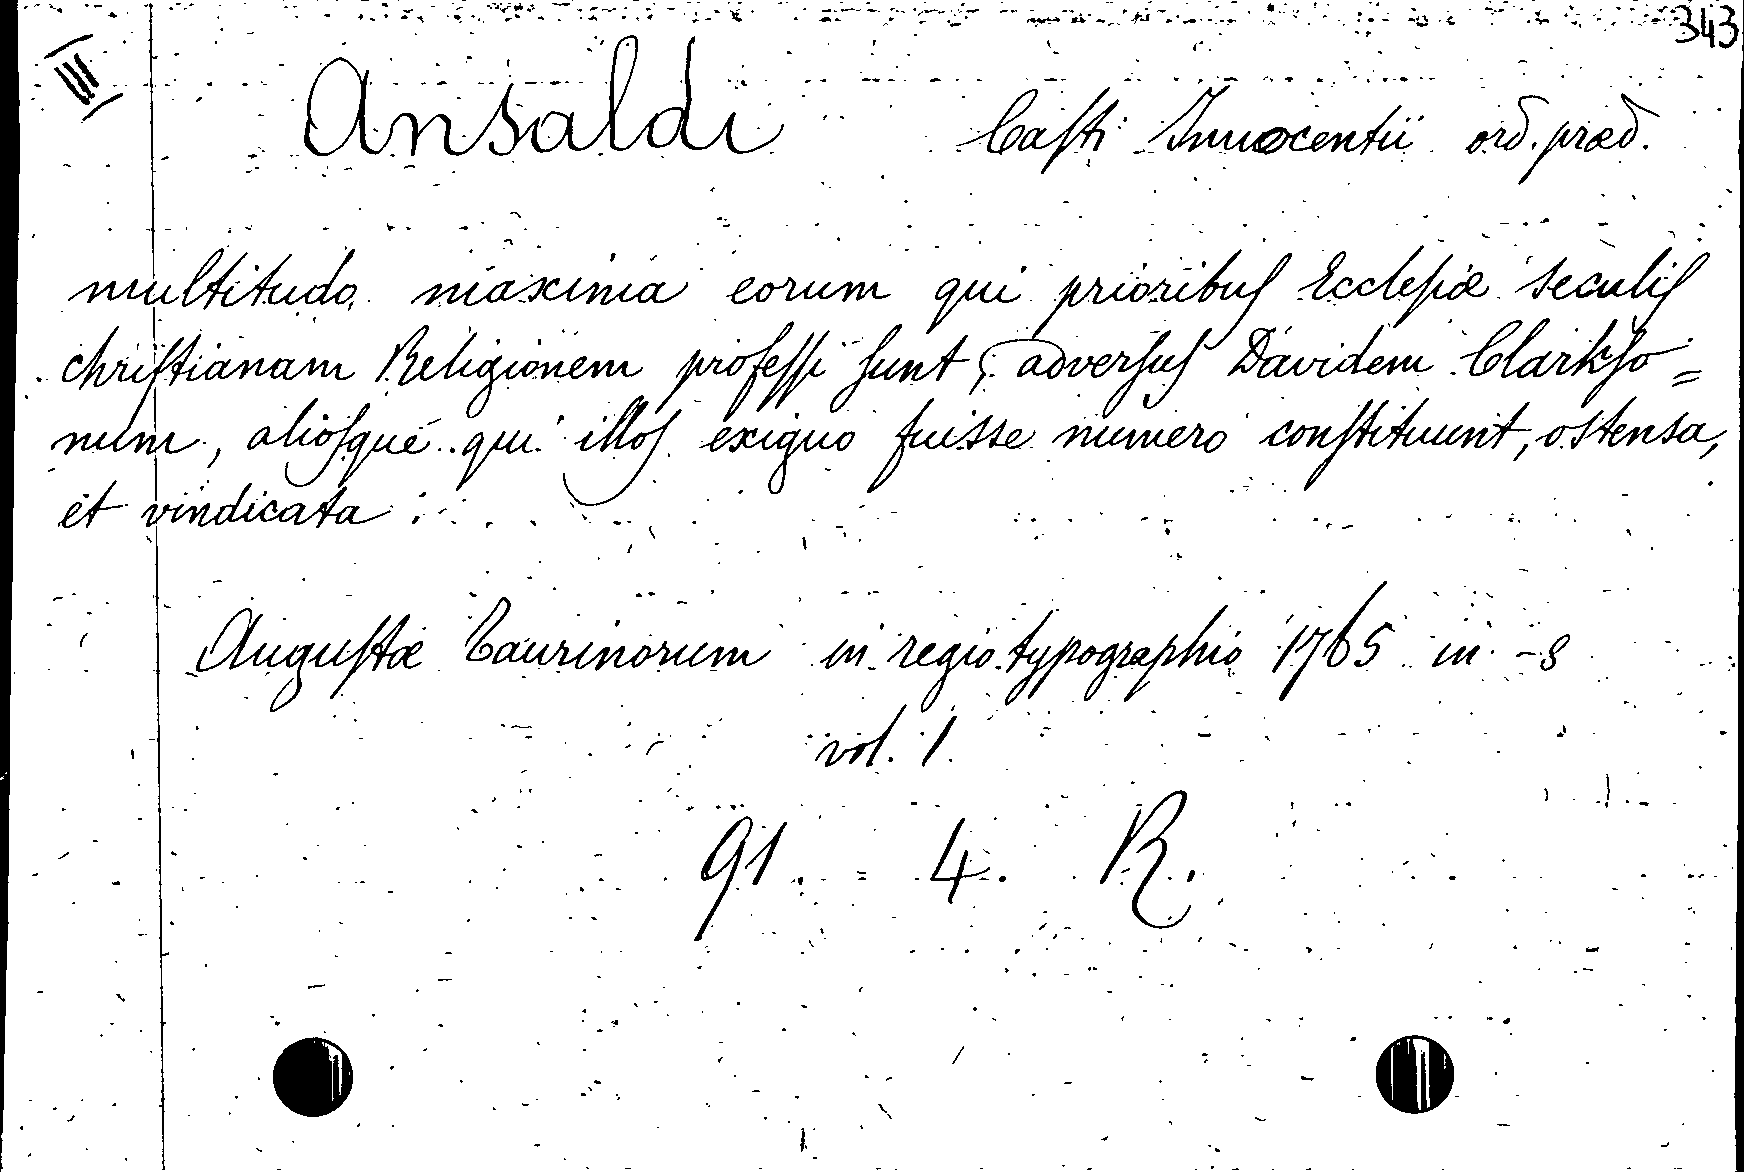 343
III
Ansaldi Casti Innocentii ord. præd.
multitudo maxima eorum qui prioribus Ecclesiæ seculis
christianam Religionem professi sunt, adversus Davidem Clarkso=
num, aliosque qui illos exiguo fuisse numero constituunt, ostensa,
et vindicata
Augustæ Taurinorum in regio typographio 1765 in -8
vol. 1.
91. 4. R.